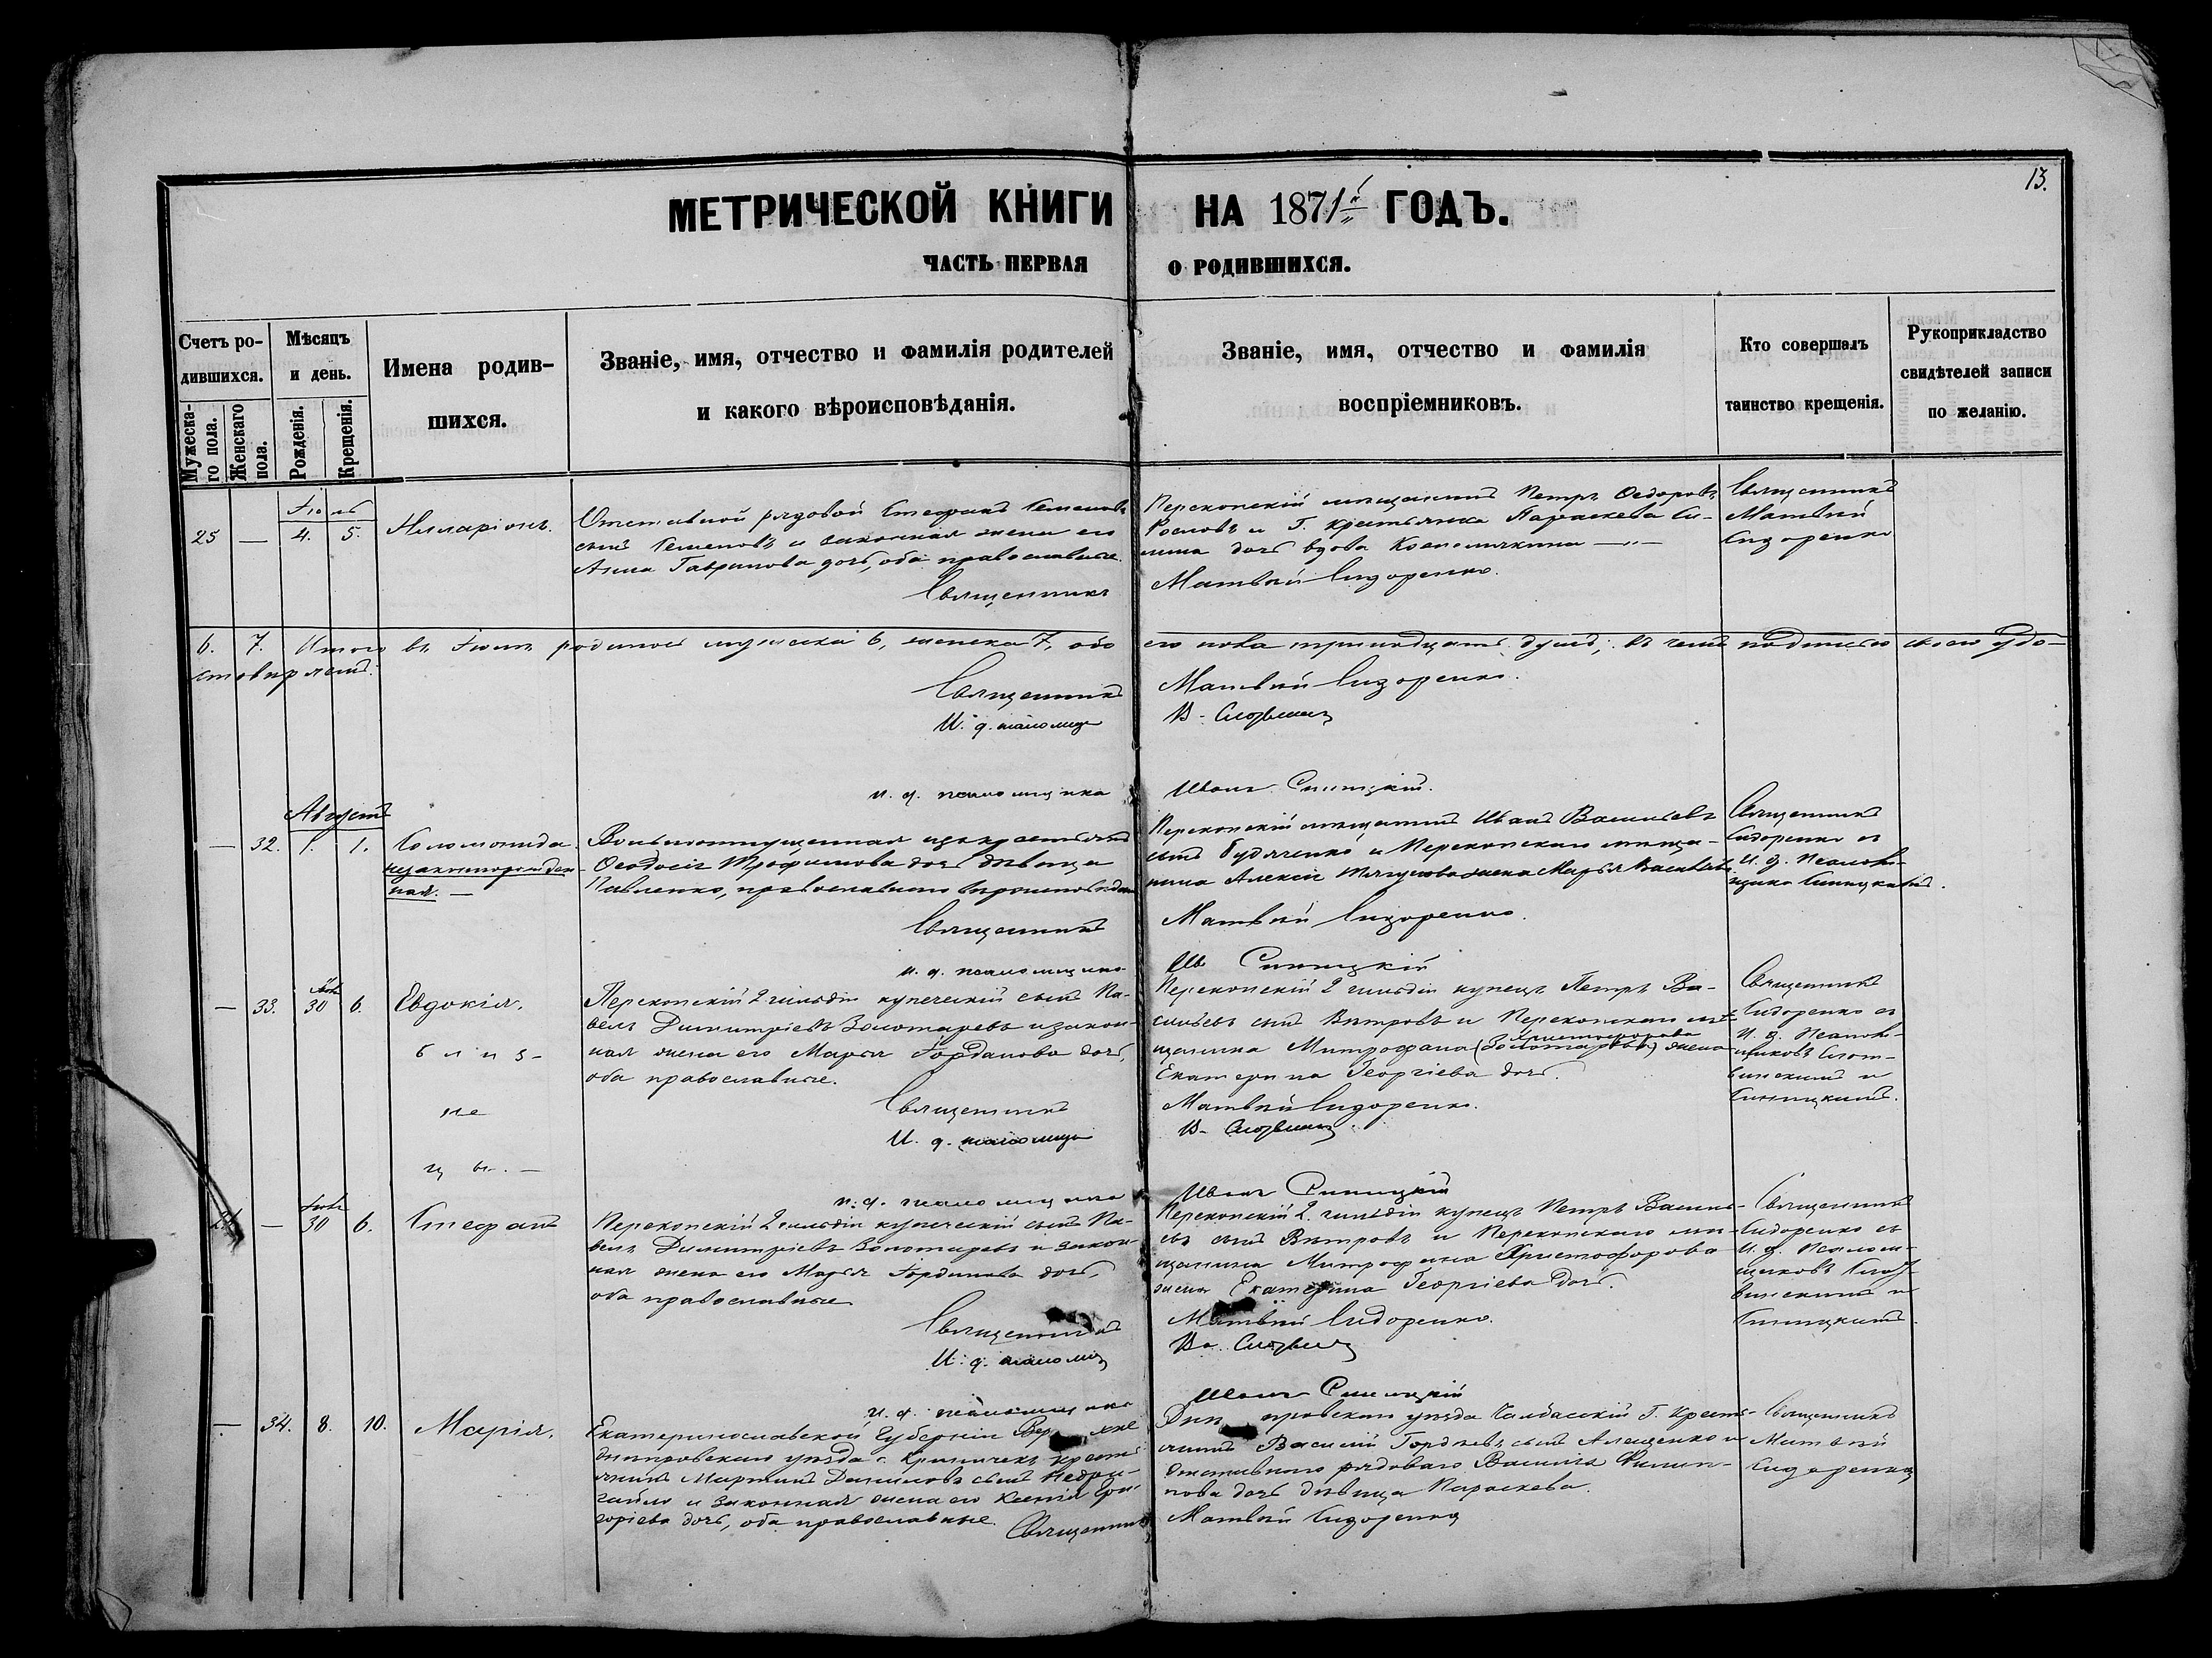 13.
МЕТРИЧЕСКОЙ КНИГИ НА 1871й ГОДЪ.
ЧАСТЬ ПЕРВАЯ О РОДИВШИХСЯ.
Счетъ ро-
дившихся.
Мужеска-
го пола.
Женскаго
пола.
Мѣсяцъ
и день.
Рожденія.
Крещенія.
Имена родив-
шихся.
Званіе, имя, отчество и фамилія родителей
и какого вѣроисповѣданія.
Званіе, имя, отчество и фамилія
воспріемниковъ.
Кто совершалъ
таинство крещенія.
Рукоприкладство
свидѣтелей записи
по желанію.
Іюль
25 — 4. 5. Илларіонъ.
Отставной рядовой Стефанъ Семеновъ
сынъ Семеновъ и законная жена его
Анна Гаврилова дочь, оба православные.
Священникъ
Перекопскій мѣщанинъ Петръ Федоровъ
и Г. крестьянка Параскева
дочь вдова
Матвѣй Сидоренко.
Священникъ
Матвѣй
Сидоренко
6. 7. Итого въ Іюлѣ родилось мужеска 6, женска 7, обо
его пола тринадцать душъ; въ чемъ подписью своею удо-
стовѣряемъ.
Священникъ Матвѣй Сидоренко.
И. д. псаломщ В.
и. д. псаломщика Иванъ Синицкій.
Августъ
— 32. 1. 1. Соломонида
незаконнорожден-
ная. —
Вольноотпущенная изъ крестьянъ
Феодосія Трофимова дочь дѣвица
Павленко, православнаго вѣроисповѣданія
Священникъ
Перекопскій мѣщанинъ Иванъ Васильевъ
сынъ и Перекопскаго мѣща-
нина Алексія жена Марья Васильева.
Матвѣй Сидоренко.
Священникъ
Сидоренко съ
И. д. Псалом-
щика Синицкимъ.
и. д. псаломщика Ив Синицкій
— 33. Іюля 30 6. Евдокія.
б л и з-
не
ц ы. —
Перекопскій 2 гильдіи купеческій сынъ Па-
велъ Димитріевъ Золотаревъ и закон-
ная жена его Марья Іорданова дочь,
оба православные.
Священникъ
И. д. псаломщи
Перекопскій 2 гильдіи купецъ Петръ Ва-
сильевъ сынъ Вѣтровъ и Перекопскаго мѣ-
Христофорова
щанина Митрофана (Золотарева) жена
Екатерина Георгіева дочь.
Матвѣй Сидоренко.
В.
Священникъ
Сидоренко съ
И. д. Псалом-
щиковъ
и
Синицкимъ.
и. д. псаломщика Иванъ Синицкій
— Іюля 30 6. Стефанъ
Перекопскій 2 гильдіи купеческій сынъ Па-
велъ Димитріевъ Золотаревъ и закон-
ная жена его Марья Іорданова дочь,
оба православные
Священникъ
И. д. псаломщ
Перекопскій 2. гильдіи купецъ Петръ Василь-
евъ сынъ Вѣтровъ и Перекопскаго мѣ-
щанина Митрофана Христофорова
жена Екатерина Георгіева дочь.
Матвѣй Сидоренко.
Священникъ
Сидоренко съ
И. д. Псалом-
щиковъ
и
Синицкимъ
и. д. псаломщика Иванъ Синицкій
— 34. 8. 10. Марія.
Екатеринославской Губерніи Верхне
днѣпровскаго уѣзда с. Криничекъ крестья
нинъ Мартинъ Даниловъ сынъ
и законная жена его Ксенія Гри-
горіева дочь, оба православные. Священникъ
Днѣпровскаго уѣзда Чалбасскій Г. Крестья-
нинъ Василій Гордѣевъ сынъ Алещенко и
отставнаго рядоваго Василія Филип-
пова дочь дѣвица Параскева.
Матвѣй Сидоренко
Священникъ
Матвѣй
Сидоренко